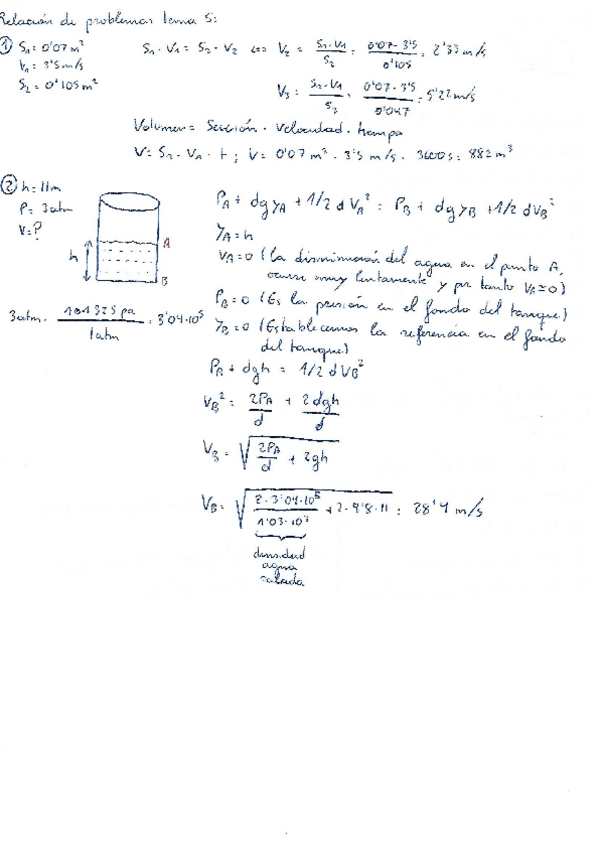 Relación de problemas tema 5:
① S₁ = 0'07 m²
V₁ = 3'5 m/s
S₂ = 0'105 m²
S₁ · V₁ = S₂ · V₂ ⇔ V₂ = S₁·V₁ / S₂ = 0'07 · 3'5 / 0'105 = 2'33 m/s
V₃ = S₁·V₁ / S₃ = 0'07 · 3'5 / 0'047 = 5'22 m/s
Volumen = Sección · velocidad · tiempo
V = S₁ · V₁ · t ; V = 0'07 m² · 3'5 m/s · 3600 s = 882 m³
② h = 11m
P = 3atm
V = ?
h
A
B
3atm · 101325 pa / 1atm = 3'04·10⁵
P_A + dgy_A + 1/2 d V_A² = P_B + dgy_B + 1/2 d V_B²
y_A = h
V_A = 0 (La disminución del agua en el punto A,
ocurre muy lentamente y por tanto V_A ≃ 0)
P_B = 0 (Es la presión en el fondo del tanque)
y_B = 0 (Establecemos la referencia en el fondo
del tanque)
P_A + dgh = 1/2 d V_B²
V_B² = 2P_A / d + 2dgh / d
V_B = √(2P_A / d + 2gh)
V_B = √(2 · 3'04·10⁵ / 1'03·10³ + 2·9'8·11) = 28'4 m/s
densidad
agua
salada